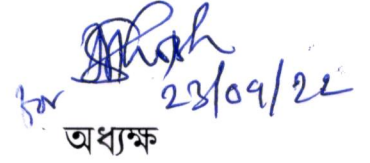 for 23/09/22
অধ্যক্ষ